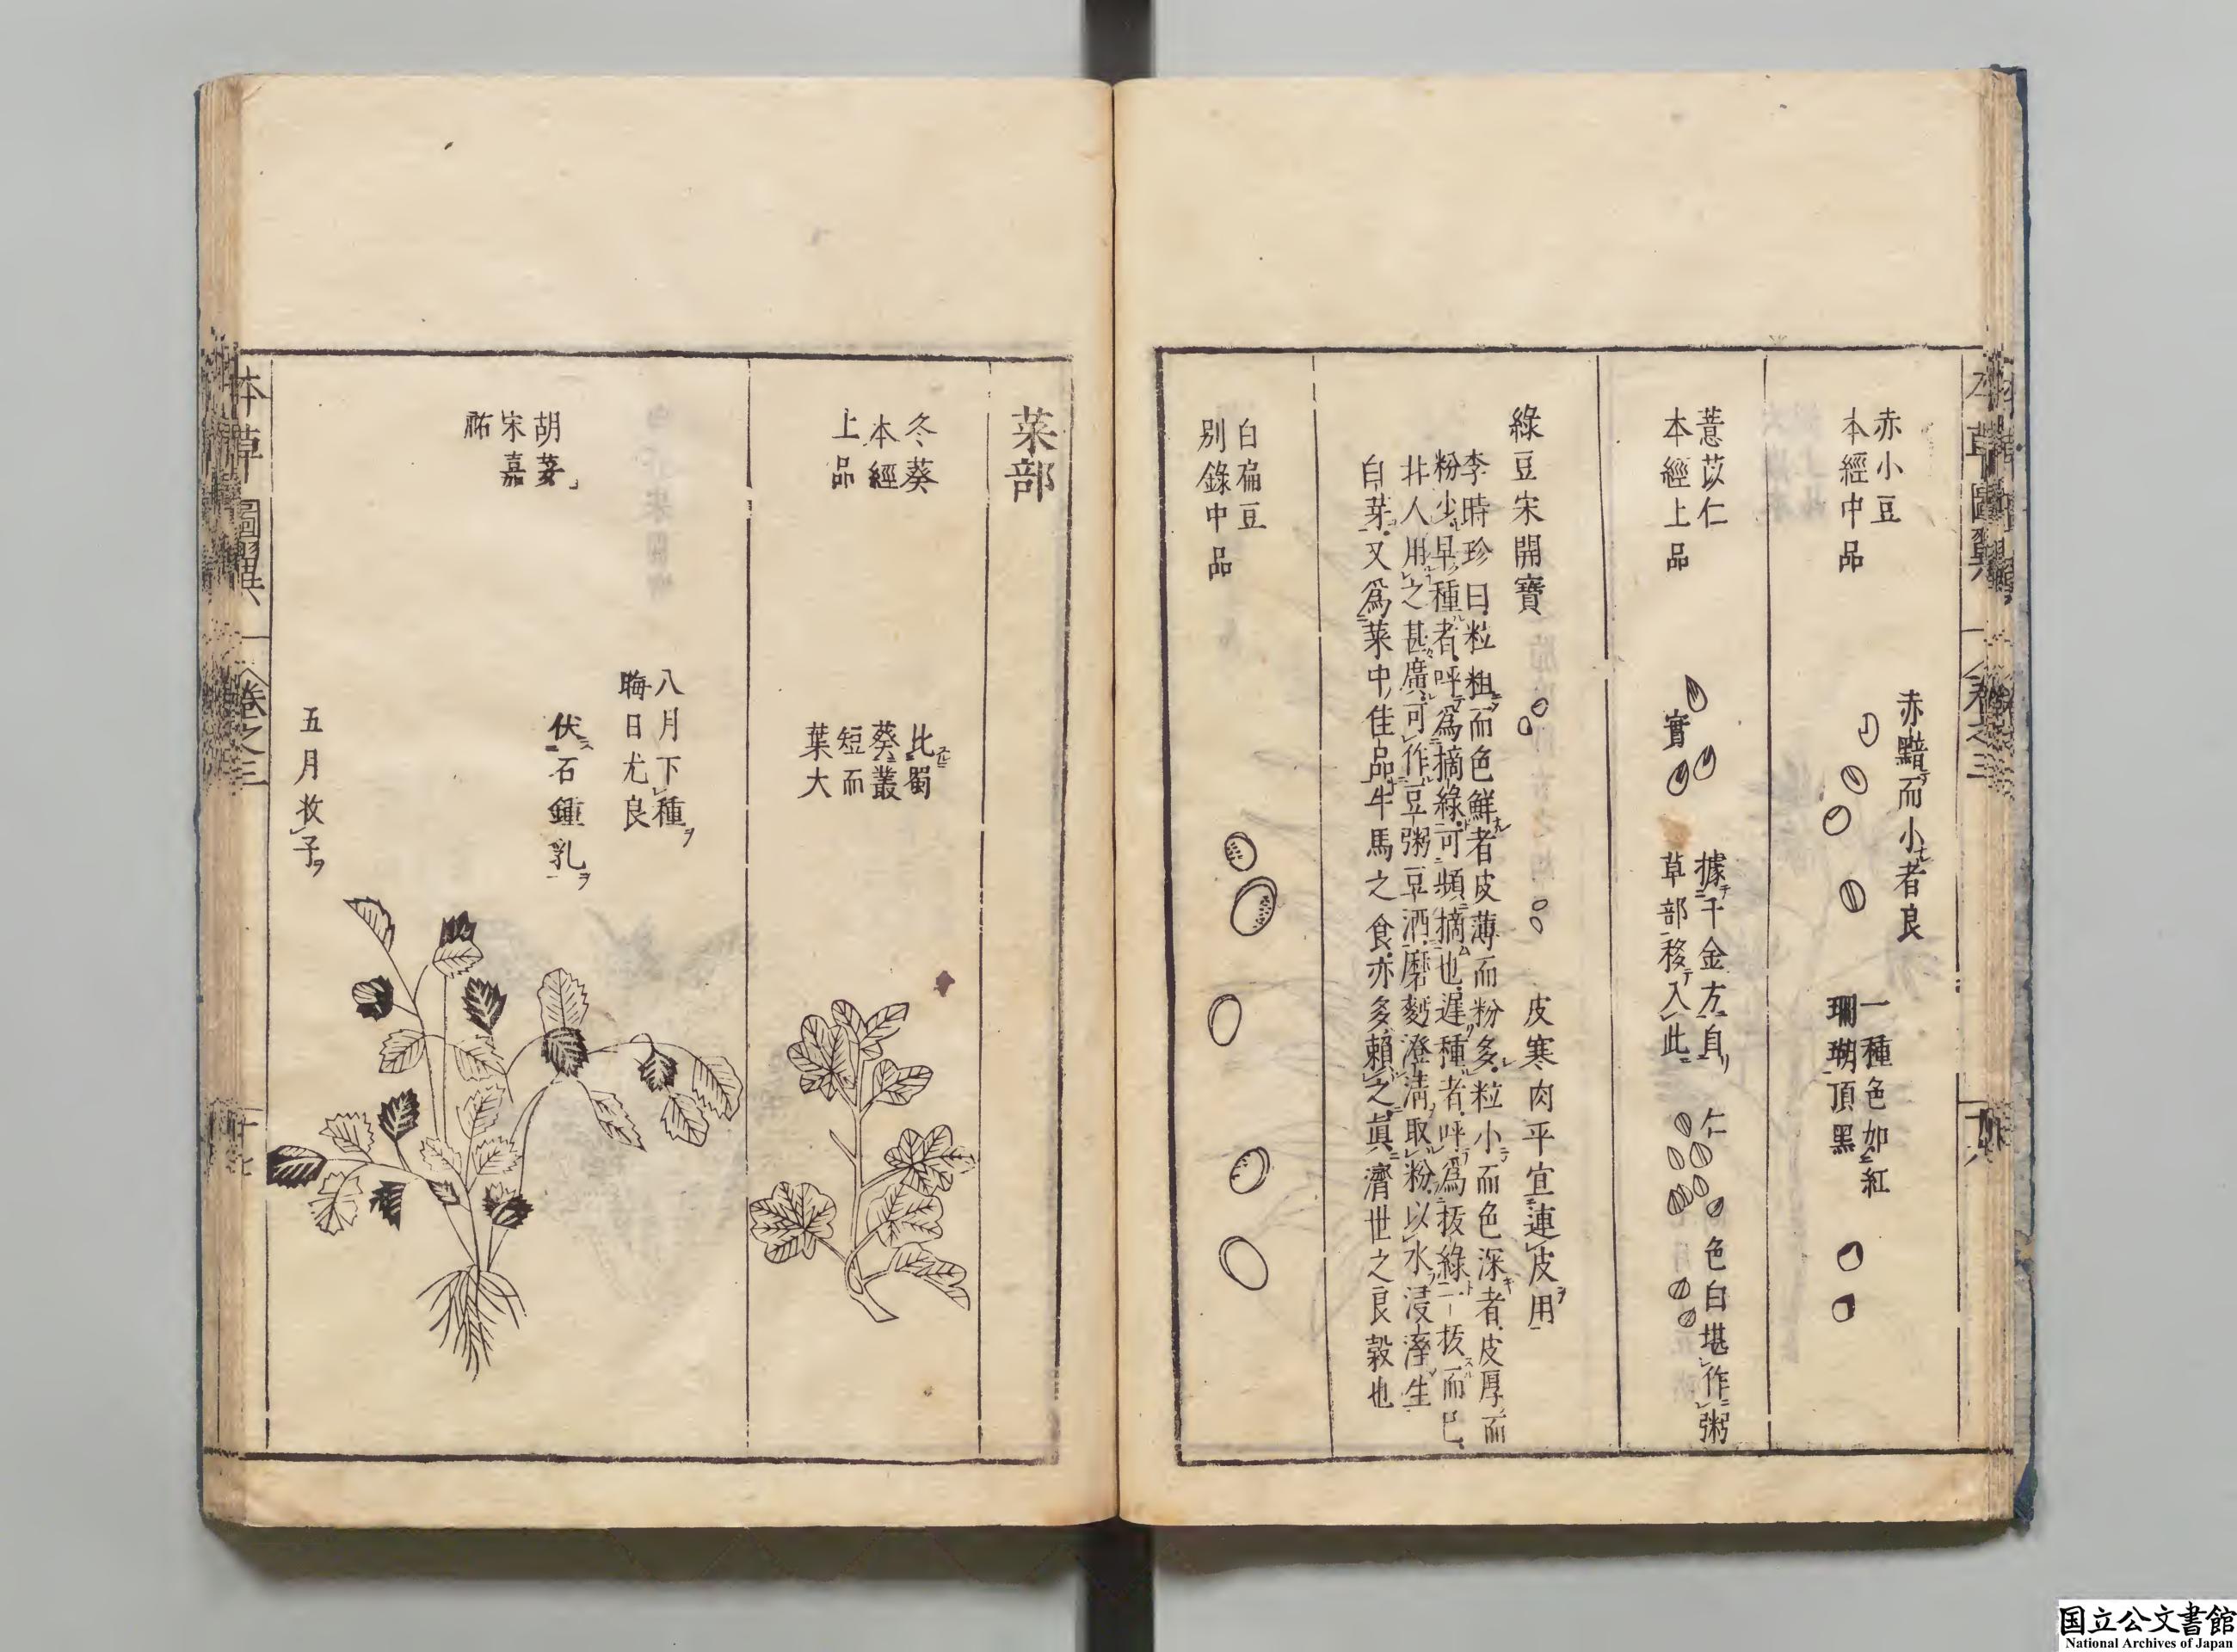 赤小豆
本經中品
赤黯而小者良
一種色如紅
珊瑚頂黑
薏苡仁
本經上品
實
據千金方自
草部移入此
仁
色白堪作粥
綠豆宋開寶
皮寒肉平宜連皮用
李時珍曰粒粗而色鮮者皮薄而粉多粒小而色深者皮厚而
粉少早種者呼爲摘綠可頻摘也遲種者呼爲拔綠一拔而已
北人用之甚廣可作豆粥豆酒磨麪澄淸取粉以水浸溼生
白芽又爲菜中佳品牛馬之食亦多賴之眞濟世之良穀也
白扁豆
別錄中品
菜部
冬葵
本經
上品
比蜀
葵叢
短而
葉大
胡荽
宋嘉
祐
八月下種ヲ
晦日尤良
伏石鍾乳ヲ
五月收子ヲ
本草圖翼
卷之三
国立公文書館
National Archives of Japan